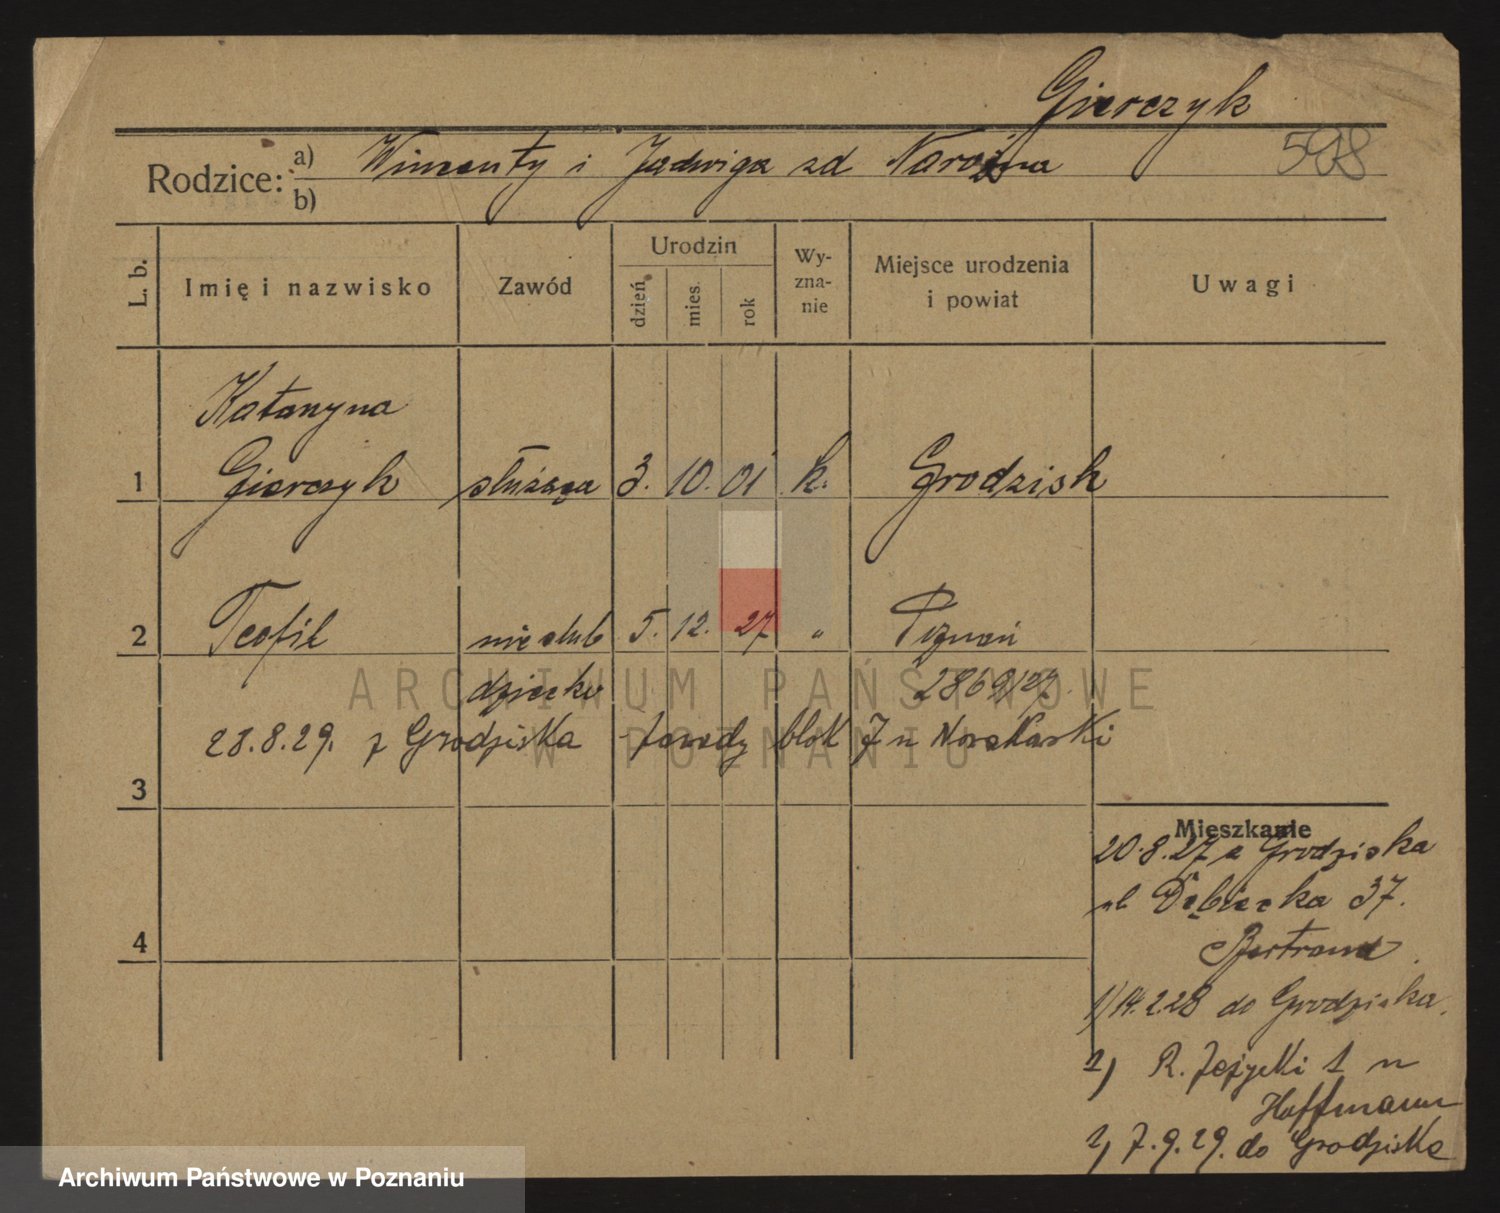 Gierczyk
Rodzice: a) Wincenty i Jadwiga zd Narożna 598
b)
L. b. Imię i nazwisko Zawód Urodzin dzień mies. rok Wy-zna-nie Miejsce urodzenia i powiat Uwagi
Katarzyna
1 Gierczyk służąca 3. 10. 01 k. Grodzisk
2 Teofil nieślub 5. 12. 27 " Poznań
dziecko 2869/27.
ARCHIWUM PAŃSTWOWE
28.8.29. z Grodziska blok 7 u Nowakarki
W POZNANIU
3
Mieszkanie
20.8.27 z Grodziska
ul Dębiecka 37.
Bertrand
4
1) 14.2.28 do Grodziska.
1) R. Jeżycki 1 u
Hoffmann
1) 7.9.29. do Grodziska
Archiwum Państwowe w Poznaniu